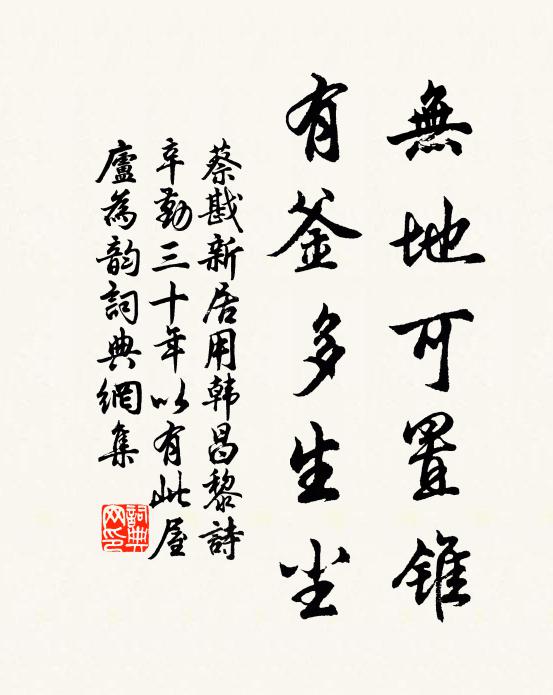 無地可置錐
有釜多生尘
蔡戡新居用韩昌黎詩
辛勤三十年以有此屋
廬為韵詞典網集
詞典
网印